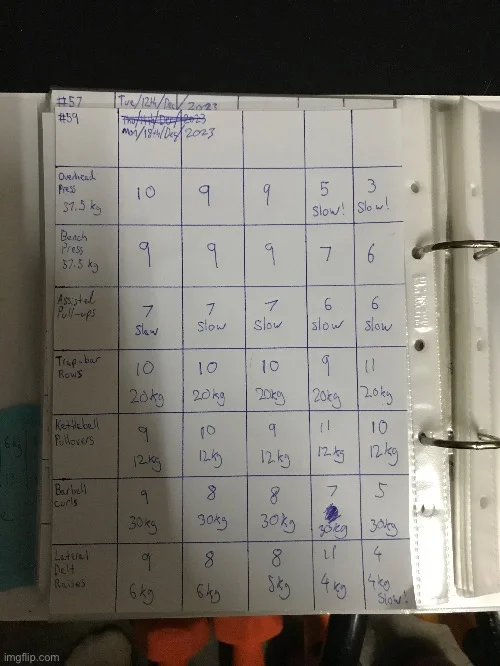 #57 Tue/12th/Dec/2023
#59 Thu/14th/Dec/2023
Mon/18th/Dec/2023
Overhead
Press 10 9 9 5 3
37.5 kg Slow! Slow!
Bench
Press 9 9 9 7 6
57.5 kg
Assisted 7 7 7 6 6
Pull-ups Slow Slow Slow Slow Slow
Trap-bar 10 10 10 9 11
Rows 20kg 20kg 20kg 20kg 20kg
Kettlebell 9 10 9 11 10
Pullovers 12kg 12kg 12kg 12kg 12kg
Barbell 9 8 8 7 5
Curls 30kg 30kg 30kg 30kg 30kg
Lateral 9 8 8 11 4
Delt
Raises 6kg 6kg 5kg 4kg 4kg
Slow!
imgflip.com